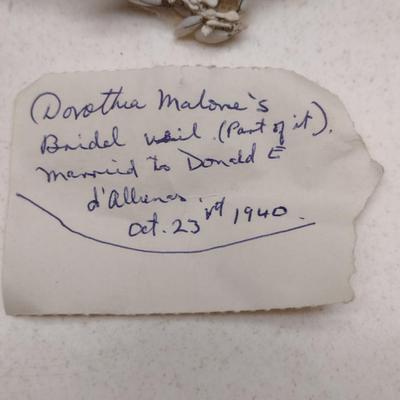 (Dorothea Malone's
Bridel veil. (Part of it).
married to Donald E
d'Allenas.
Oct. 23rd 1940.